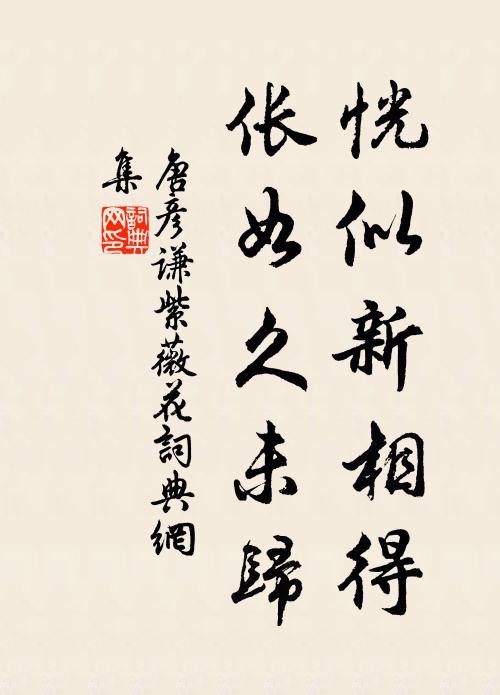 恍似新相得
伥如久未歸
唐彦谦紫薇花詞典網
集
詞典
网印